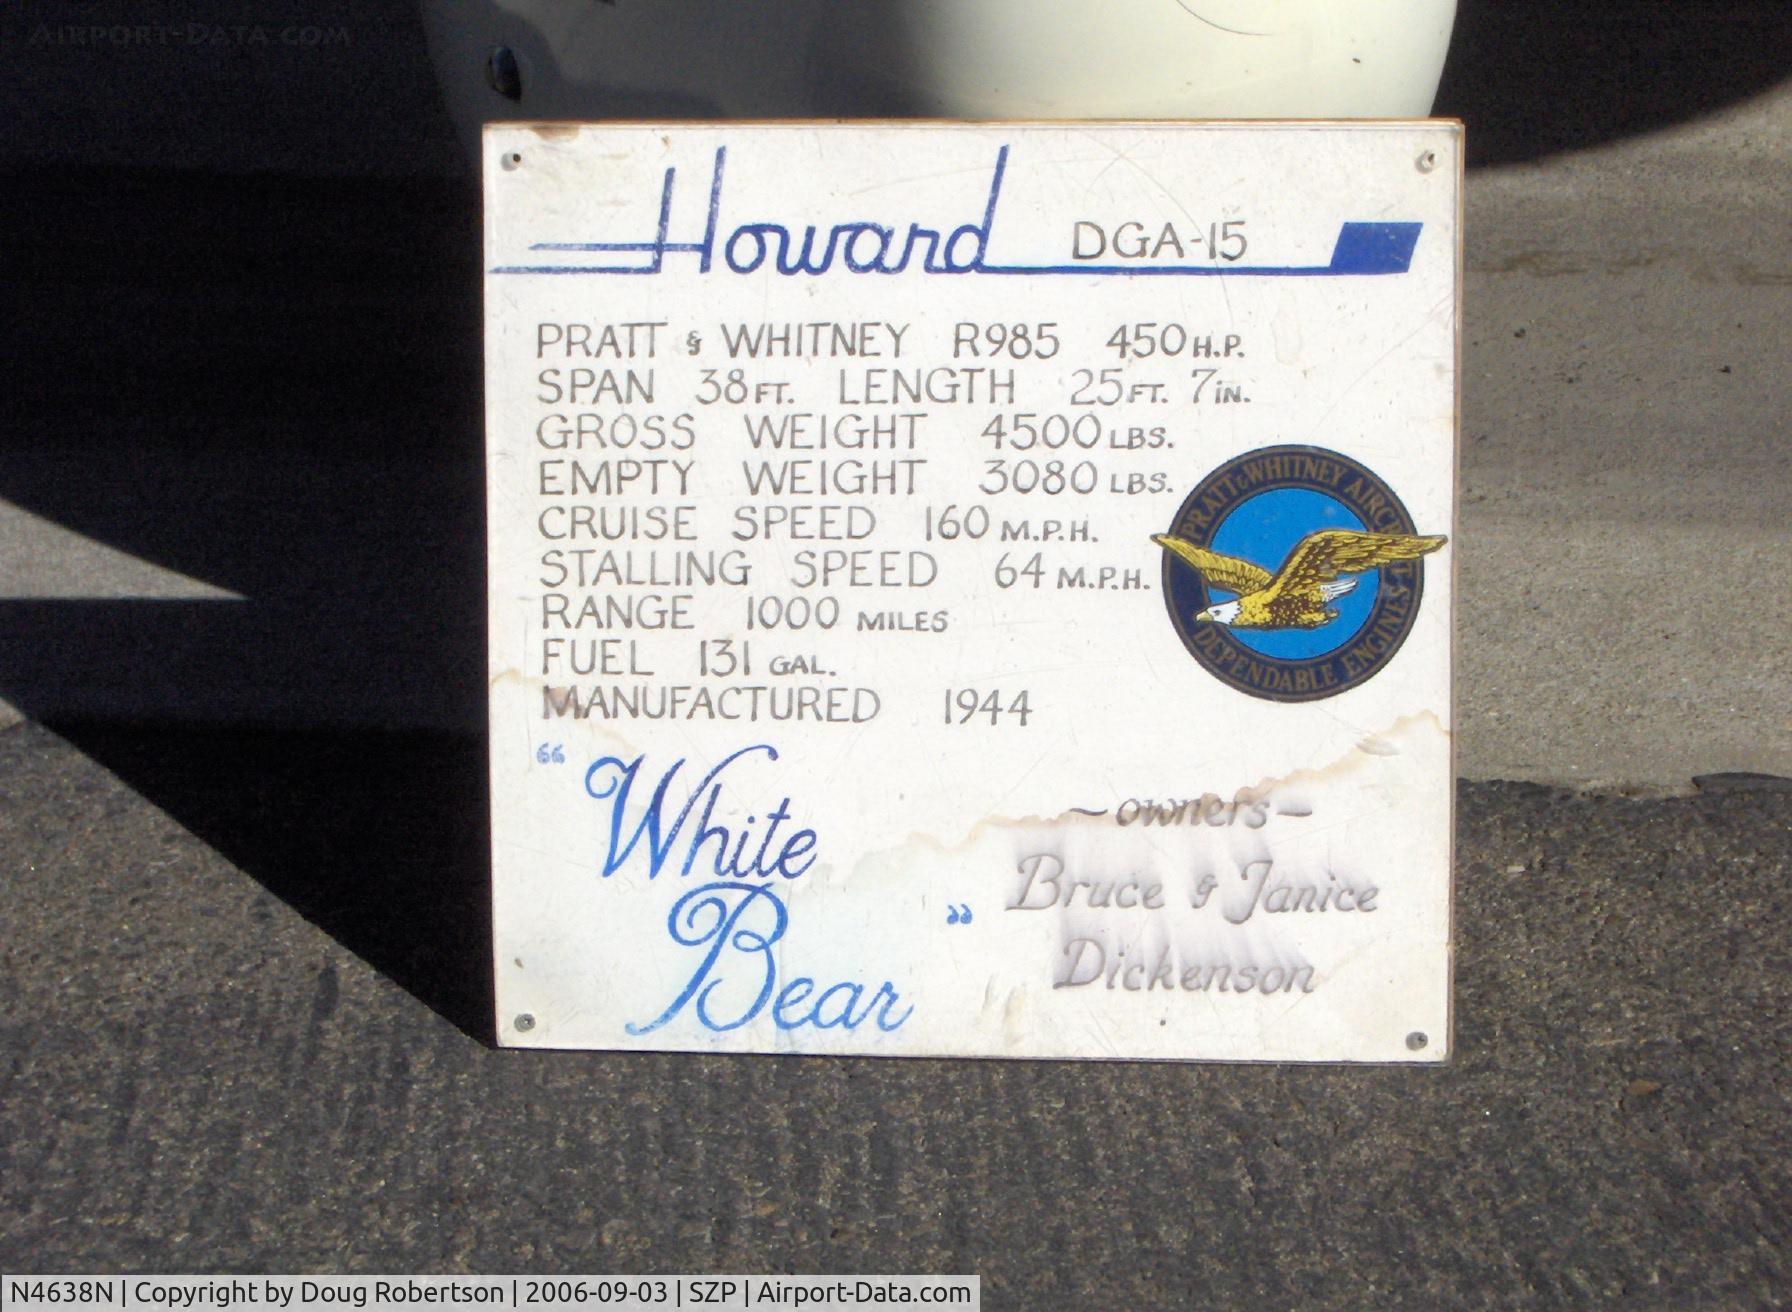 AIRPORT-DATA.COM
Howard DGA-15
PRATT & WHITNEY R985 450 H.P.
SPAN 38 FT. LENGTH 25 FT. 7 IN.
GROSS WEIGHT 4500 LBS.
EMPTY WEIGHT 3080 LBS.
CRUISE SPEED 160 M.P.H.
STALLING SPEED 64 M.P.H.
RANGE 1000 MILES
FUEL 131 GAL.
MANUFACTURED 1944
PRATT & WHITNEY AIRCRAFT
DEPENDABLE ENGINES
"White
Bear"
-owners-
Bruce & Janice
Dickenson
N4638N | Copyright by Doug Robertson | 2006-09-03 | SZP | Airport-Data.com